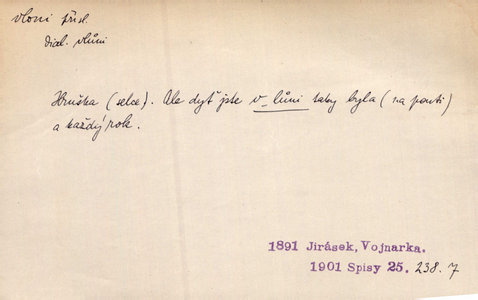 vloni přísl.
dial. vlůni
Hruška (selce). Ale dyť jste v_lůni taky byla (na pouti)
a každý rok.
1891 Jirásek, Vojnarka.
1901 Spisy 25. 238. 7